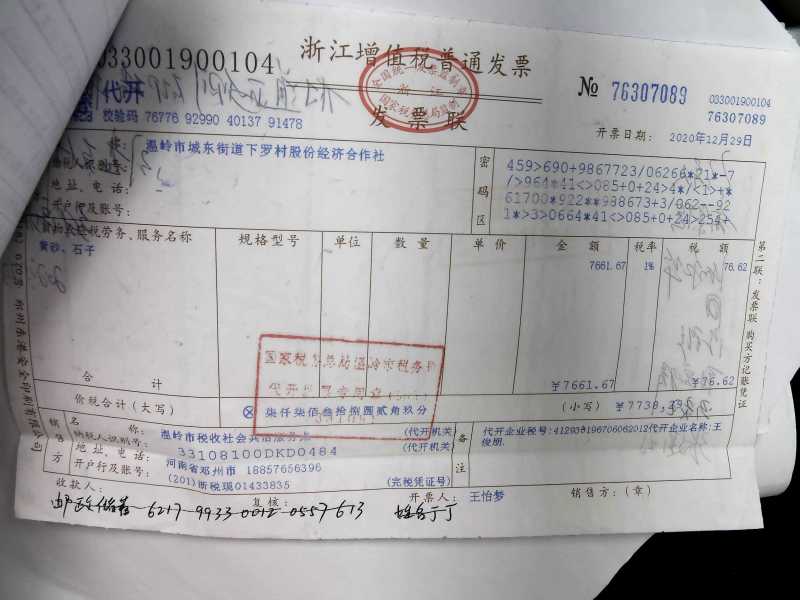 033001900104
浙江增值税普通发票
№ 76307089
033001900104
76307089
代开
发票联
校验码 76776 92990 40137 91478
开票日期: 2020年12月29日
全国统一发票监制章
浙江
国家税务总局监制
称: 温岭市城东街道下罗村股份经济合作社
纳税人识别号:
地址、电话:
开户行及账号:
密码区
459>690+9867723/06266*21*-7
/>964*41<>085+0+24>4*/<1>+*
61700*922**988673+3/062--92
1*>3>0664*41<>085+0+24>254+
货物或应税劳务、服务名称 规格型号 单位 数量 单价 金额 税率 税额
黄砂、石子 7661.67 1% 76.62
合计 ¥7661.67 ¥76.62
价税合计(大写) ⊗ 柒仟柒佰叁拾捌圆贰角玖分 (小写) ¥7738.29
代开发票专用章
第二联:发票联 购买方记账凭证
销售方
名称: (代开机关)
纳税人识别号: 33108100DKD0484 (代开机关)
地址、电话: 河南省邓州市 18857656396
开户行及账号: (201)浙税现01433835 (完税凭证号)
备注
代开企业税号:412903196706062012代开企业名称:王
俊朋.
收款人: 复核: 开票人: 王怡梦 销售方:(章)
6217-9933-0012-0557-613